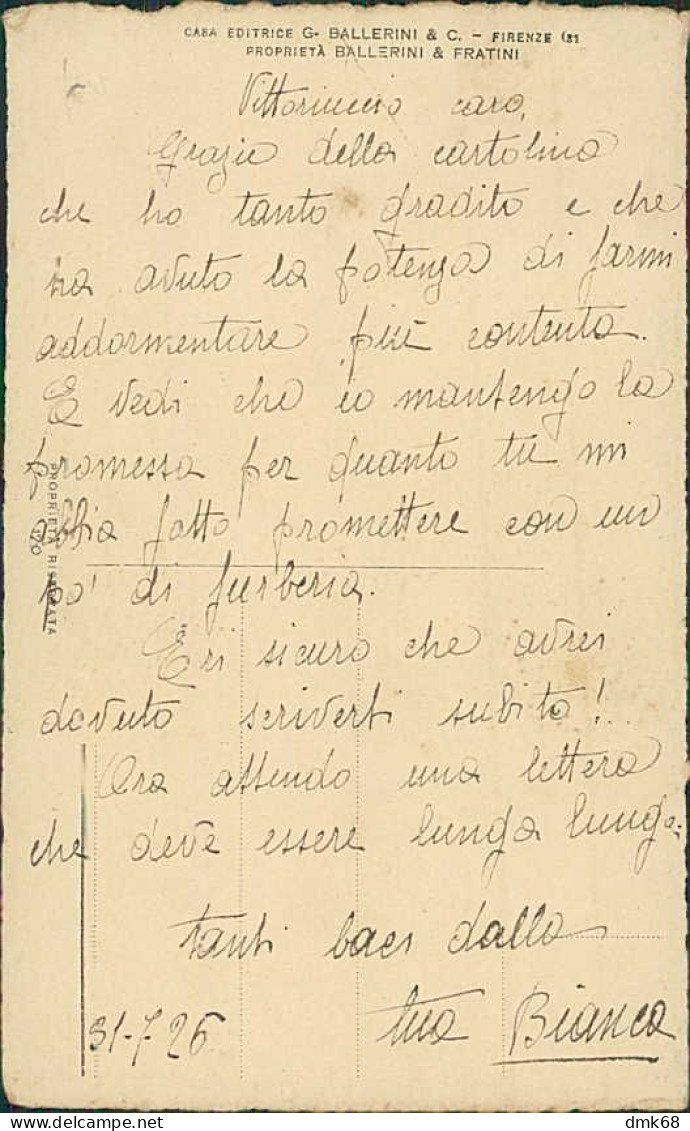 CASA EDITRICE G. BALLERINI & C. - FIRENZE (31
PROPRIETÀ BALLERINI & FRATINI
Vittoriuccio caro,
Grazie della cartolina
che ho tanto gradito e che
ha avuto la potenza di farmi
addormentare più contenta.
E vedi che io mantengo la
promessa per quanto tu mi
abbia fatto promettere con un
po' di furberia.
Eri sicuro che avrei
dovuto scriverti subito!..
Ora attendo una lettera
che deve essere lunga lunga.
Tanti baci dalla
tua Bianca
31-7-26
PROPRIETÀ RISERVATA
dmk68